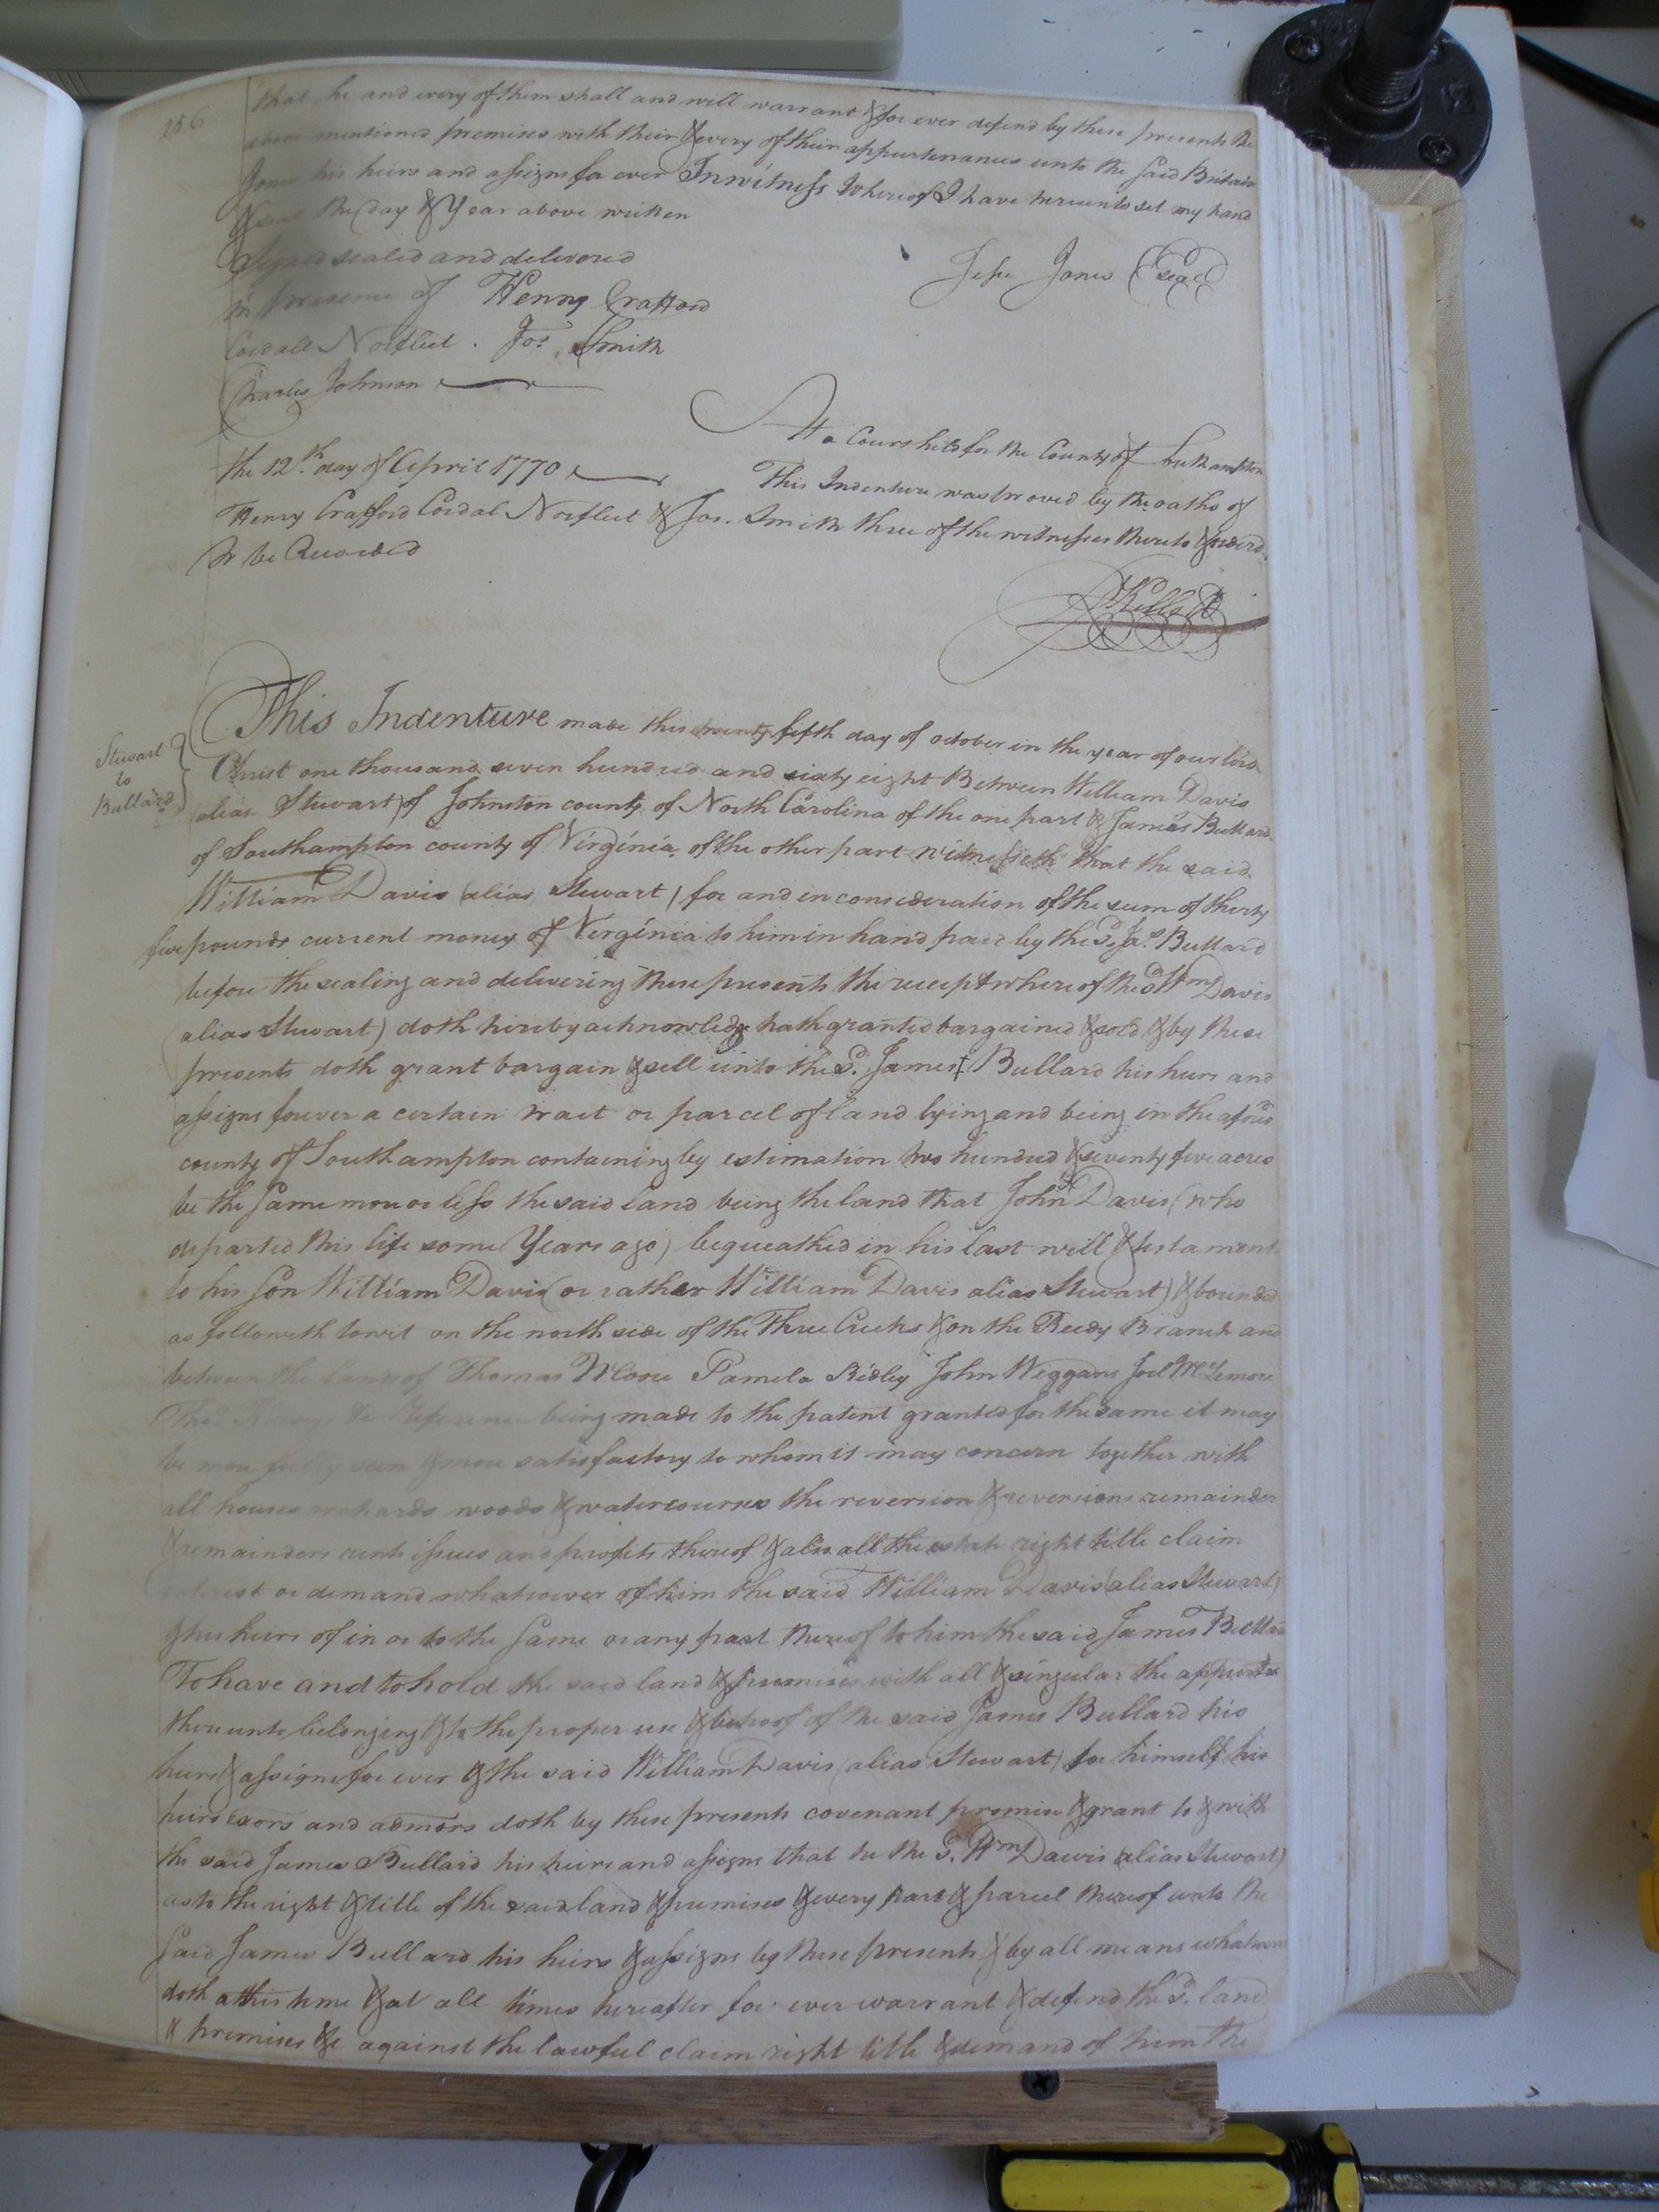 256
that he and every of them shall and will warrant & for ever defend by these presents the
above mentioned premises with their & every of their appurtenances unto the said Britain
Jones his heirs and assigns for ever In witness whereof I have hereunto set my hand
& seal the day & Year above written
Signed sealed and delivered
in presence of Henry Crafford
Cordall Norfleet . Jos. Smith
Charles Johnson
Jesse Jones (seal)
At a Court held for the County of Southampton
the 12th. day of April 1770
This Indenture was proved by the oaths of
Henry Crafford Cordal Norfleet & Jos. Smith three of the witnesses thereto & orderd.
to be Recorded
Stewart
to
Bullard
This Indenture made this twenty fifth day of october in the year of our lord
Christ one thousand seven hundred and sixty eight Between William Davis
(alias Stewart) of Johnston county of North Carolina of the one part & James Bullard
of Southampton county of Virginia of the other part witnesseth that the said
William Davis (alias Stewart) for and in consideration of the sum of thirty
five pounds current money of Virginia to him in hand paid by the sd. Jas. Bullard
before the sealing and delivering these presents the receipt where of the sd Wm Davis
(alias Stewart) doth hereby acknowledge hath granted bargained & sold & by these
presents doth grant bargain & sell unto the sd. James Bullard his heirs and
assigns forever a certain tract or parcel of land lying and being in the aforsd
county of Southampton containing by estimation two hundred & seventy five acres
be the same more or less the said land being the land that John Davis (who
departed this life some Years ago) bequeathed in his last will & testament
to his son William Davis (or rather William Davis alias Stewart) & bounded
as followeth towit on the north side of the Three Creeks & on the Reedy Branch and
between the lands of Thomas Moore Pamela Ridley John Weggans Joel McLemore
Thos. &c Reference being made to the patent granted for the same it may
be more fully seen & more satisfactory to whom it may concern together with
all houses orchards woods & watercourses the reversion & reversions remainder
& remainders rents issues and profits thereof & also all the estate right title claim
interest or demand whatsoever of him the said William Davis (alias Stewart)
& his heirs of in or to the same or any part thereof to him the said James Bullard
To have and to hold the said land & premises with all & singular the appurts
thereunto belonging & to the proper use & behoof of the said James Bullard his
heirs & assigns for ever & the said William Davis (alias Stewart) for himself his
heirs exors and admors doth by these presents covenant promise & grant to & with
the said James Bullard his heirs and assigns that he the sd. Wm Davis (alias Stewart)
as to the right & title of the said land & premises & every part & parcel thereof unto the
said James Bullard his heirs & assigns by these presents & by all means whatsoever
doth at this time & at all times hereafter for ever warrant & defend the sd. land
& premises &c against the lawful claim right title & demand of him the